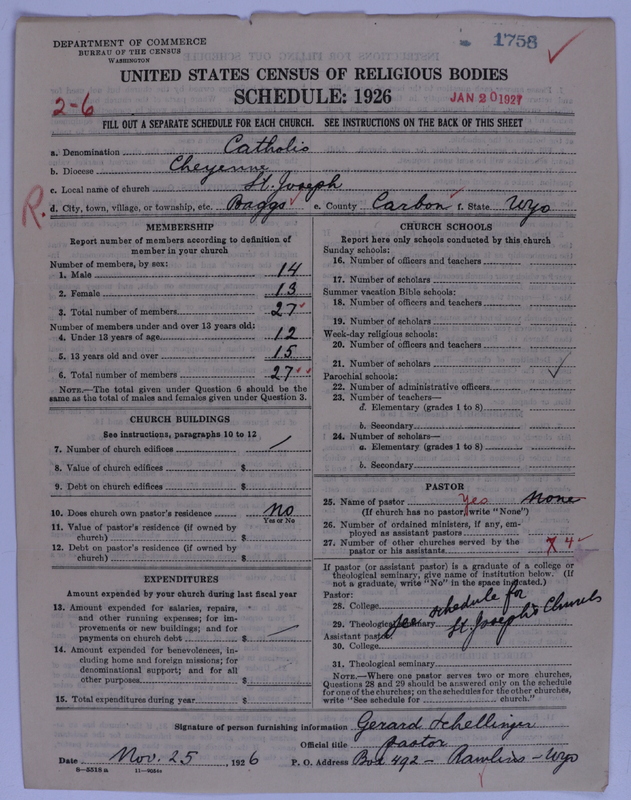 DEPARTMENT OF COMMERCE
BUREAU OF THE CENSUS
WASHINGTON
1758
UNITED STATES CENSUS OF RELIGIOUS BODIES
SCHEDULE: 1926
2-6
JAN 20 1927
FILL OUT A SEPARATE SCHEDULE FOR EACH CHURCH. SEE INSTRUCTIONS ON THE BACK OF THIS SHEET
a. Denomination Catholic
b. Diocese Cheyenne
c. Local name of church St. Joseph
R. d. City, town, village, or township, etc. Baggs e. County Carbon f. State Wyo
MEMBERSHIP
Report number of members according to definition of member in your church
Number of members, by sex:
1. Male 14
2. Female 13
3. Total number of members 27
Number of members under and over 13 years old:
4. Under 13 years of age 12
5. 13 years old and over 15
6. Total number of members 27
NOTE.—The total given under Question 6 should be the
same as the total of males and females given under Question 3.
CHURCH BUILDINGS
See instructions, paragraphs 10 to 12
7. Number of church edifices
8. Value of church edifices $
9. Debt on church edifices $
10. Does church own pastor's residence No
Yes or No
11. Value of pastor's residence (if owned by
church) $
12. Debt on pastor's residence (if owned by
church) $
EXPENDITURES
Amount expended by your church during last fiscal year
13. Amount expended for salaries, repairs,
and other running expenses; for im-
provements or new buildings; and for
payments on church debt $
14. Amount expended for benevolences, in-
cluding home and foreign missions; for
denominational support; and for all
other purposes $
15. Total expenditures during year $
CHURCH SCHOOLS
Report here only schools conducted by this church
Sunday schools:
16. Number of officers and teachers
17. Number of scholars
Summer vacation Bible schools:
18. Number of officers and teachers
19. Number of scholars
Week-day religious schools:
20. Number of officers and teachers
21. Number of scholars
Parochial schools:
22. Number of administrative officers
23. Number of teachers—
a. Elementary (grades 1 to 8)
b. Secondary
24. Number of scholars—
a. Elementary (grades 1 to 8)
b. Secondary
PASTOR
25. Name of pastor Yes None
(If church has no pastor, write "None")
26. Number of ordained ministers, if any, em-
ployed as assistant pastors
27. Number of other churches served by the
pastor or his assistants 4
If pastor (or assistant pastor) is a graduate of a college or
theological seminary, give name of institution below. (If
not a graduate, write "No" in the space indicated.)
Pastor:
28. College
29. Theological seminary
See schedule for
St. Joseph's Church
Assistant pastor:
30. College
31. Theological seminary
NOTE.—Where one pastor serves two or more churches,
Questions 28 and 29 should be answered only on the schedule
for one of the churches; on the schedules for the other churches,
write "See schedule for church."
Signature of person furnishing information Gerard Schellinger
Official title Pastor
Date Nov. 25, 1926 P. O. Address Box 492 - Rawlins - Wyo
8-5518a 11-9054a